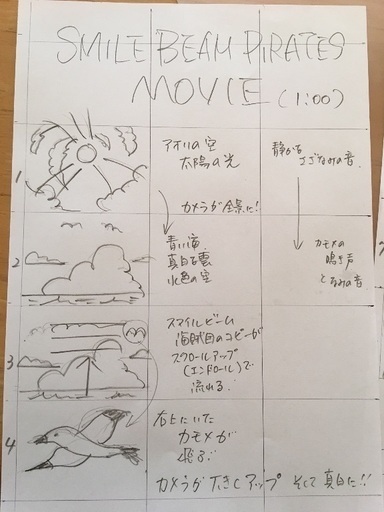 SMILE BEAM PIRATES
MOVIE (1:00)
1
アオリの空
太陽の光
静かな
さざなみの音
カメラが全景に!!
2
青い海
真白な雲
水色の空
カモメの
鳴き声
となみの音
3
スマイルビーム
海賊団のコピーが
スクロールアップ
(エンドロール)で
流れる
4
右上にいた
カモメが
飛ぶ
カメラが大きくアップ そして真白に!!